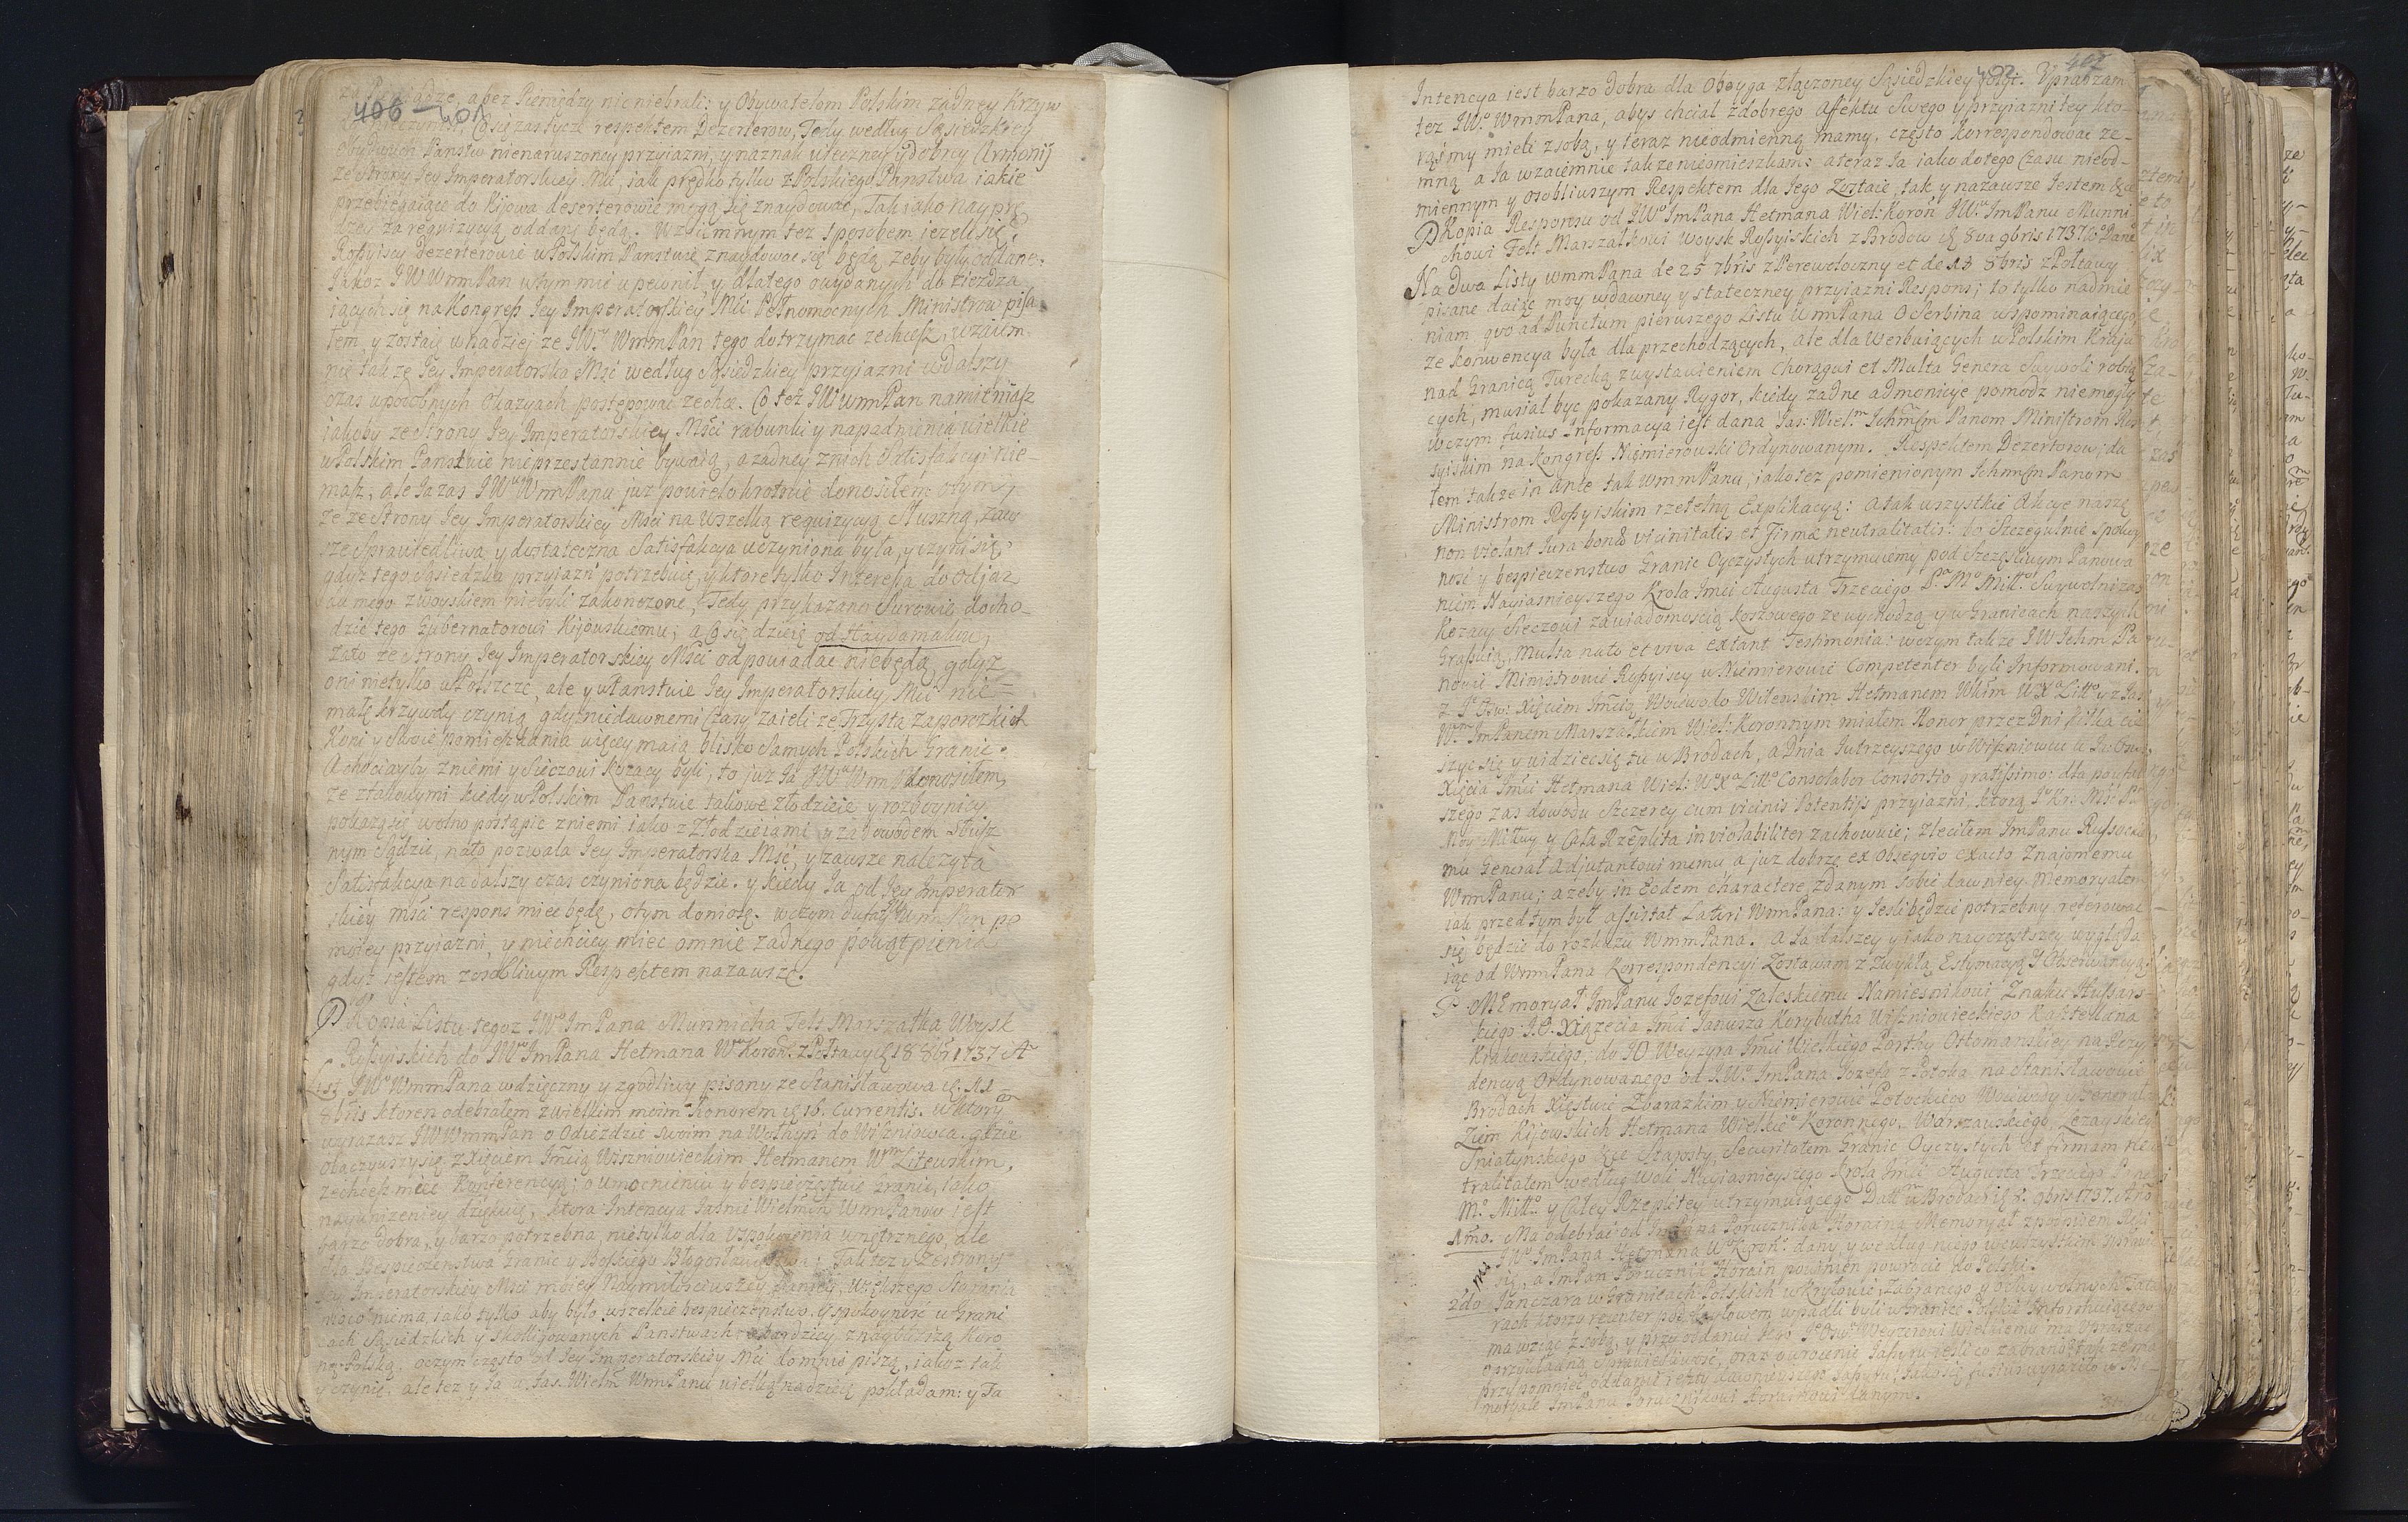 406 401
za Pieniądze, a bez Pieniędzy nic niebrali: y Obywatelom Polskim zadney krzyw
Co się zas tycze respektem Dezerterow, Tedy według Sąsiedzkiey
Panstw nienaruszoney przyiazni, y naznak wieczney y dobrey Armonij
ze strony Jey Imperatorskiey Mći, iak prędko tylko z Polskiego Panstwa iakie
przebiegaiące do Kijowa deserterowie mogą się znaydować, Tak iako nayprę
dzey za requizycyą oddani będą. Wzaiemnym tez sposobem iezeli się
Roſsyiscy Dezerterowie w Polskim Panstwie znaydować się będą, zeby byli oddane.
Jakoz JWWmmPan wtym mię upewnił, y dlatego wydanych do ziezdza
iących się na Kongreſs Jey Imperatorskiey Mći Pełnomocnych Ministrow pisa
łem, y zostaię w nadziei ze JWWmmPan tego dotrzymac zechceſz, wzaiem
nie także Jey Imperatorska Mść według Sąsiedzkiey przyiazni w dalszy
czas w podobnych Okazyach postępowac zechce. Co też JWWmmPan namieniasz
iakoby ze Strony Jey Imperatorskiey Mści rabunki y napadnienia wielkie
w Polskim Panstwie nieprzestannie bywaią, a zadney znich Satisfakcyi nie
masz, ale Ja zas JWuWmmPanu juz powielokrotnie donosiłem otym,
ze ze Strony Jey Imperatorskiey Mści na wszelką requizycyą Słuszną, zaw
sze Sprawiedliwa y dostateczna Satisfakcya uczyniona była, y czyni się,
gdyz tego Sąsiedzka przyiazń potrzebuie, y ktore tylko Interessa do odjaz
du mego z woyskiem niebyli zakonczone, Tedy przykazano Surowie docho
dzic tego Gubernatorowi Kijowskiemu; a Co się dzieie od Haydamakow,
zato ze strony Jey Imperatorskiey Mści odpowiadac niebędą, gdyz
oni nietylko w Polszcze, ale y w Panstwie Jey Imperatorskiey Mći nie
małe krzywdy czynią, gdy niedawnemi Czasy zaieli ze Trzysta zaporozkich
Koni y Swoie pomieszkania więcey maią blisko Samych Polskich Granic.
A chociayby zniemi y Sieczowi Kozacy byli, to juz Ja JWuWmmPanu donosiłem,
ze ztakowymi kiedy w Polskim Panstwie takowe złodzieie y rozboynicy
pokażą się wolno postąpic zniemi iako z Złodzieiami y za dowodem Słusz
nym Sądzic, nato pozwala Jey Imperatorska Mść, y zawsze nalezyta
Satisfakcya na dalszy czas czyniona będzie. y kiedy Ja od Jey Imperator
skiey Mści respons miec będę, otym doniosę. wczym dufay JWWmmPan po
moiey przyiazni, y niechciey miec omnie zadnego powątpienia
gdyż iestem z osobliwym Respektem nazawsze.
Kopia Listu tegoz JWo ImPana Munnicha Felt Marszałka Woysk
Roſsyiskich do JWo ImPana Hetmana Wo Koron. z Połtawy 18 8bris 1737 A
List JWo WmmPana wdzięczny y zgodliwy pisany ze Stanisławowa
8bris ktoren odebrałem z wielkim moim Honorem 16. currentis. w ktory
wyrazasz JWWmmPan o Odieździe swoim na Wołhyń do Wiszniowca. gdzie
obaczywszy się z Xięciem Imcią Wiszniowieckim Hetmanem Wm Litewskim,
zechcesz miec Konferencyą; o umocnieniu y bespieczęstwie Granic, iako
nayunizeniey dziękuię, ktora Intencya Jasnie Wielmch WmmPanow iest
barzo dobra, y barzo potrzebna, nietylko dla Uspokoienia wnętrznego, ale
dla Bespieczenstwa Granic y Boskiego Błogosławienstwa: Tak tez y zestrony
Jey Imperatorskiey Mści moiey Naymiłościwszey Paniey, większego Starania
niema, iako tylko aby było wszelkie bespieczenstwo, y spokoyność w Grani
cach Sąsiedzkich y skolligowanych Panstwach, a bardziey z naybliższą Koro
ną Polską, oczym często od Jey Imperatorskiey Mći domnie piszą, iakoz tak
y czynię, ale tez y Ja w Jas. Wielm WmmPanu wielką nadzieię pokładam: y Ta
402
Intencya iest barzo dobra dla Oboyga złączoney Sąsiedzkiey Upradzam
tez JWo WmmPana, abys chciał z dobrego Affektu Swego y przyiazni tey kto
rąsmy mieli z sobą, y teraz nieodmienną mamy, często korrespondowac ze
mną a Ja wzaiemnie także nieomieszkam: a teraz Ja iako dotego Czasu nieod
miennym y osobliwszym Respektem dla Jego zostaię, tak y nazawsze Jestem &c
Kopia Responsu od JWo ImPana Hetmana Wiel: Koroń JWu ImPanu Munni
chowi Felt Marszałkowi Woysk Roſsyiskich z Brodow 8va 9bris 1737
Na dwa Listy WmmPana de 25 7bris z Perewołoczny et de 18 8bris z Połtawy
pisane daię moy wdawney y stateczney przyiazni Respons; to tylko nadmie
niam quo ad Punctum pierwszego Listu WmmPana O Serbina wspominaiącego
ze Konwencya była dla przechodzących, ale dla Werbuiących w Polskim Kraju
nad Granicą Turecką, zwystawieniem Chorągwi et Multa Genera Swywoli robią
cych, musiał byc pokazany Rygor, kiedy żadne admonicye pomodz niemogły
wczym fusius Informacya iest dana Jas: Wielm Ichmćm Panom Ministrom Ros
syiskim na Kongreſs Niemierowski Ordynowanym. Respektem Dezerterow; da
łem takze in ante tak WmmPanu, iako tez pomienionym Ichmćm Panom
Ministrom Roſsyiskim rzetelną Explikacyą: a tak wszystkie Akcye nasze
non violant Jura bonæ vicinitatis et Firmæ neutralitatis: bo Szczegulnie Spokoy
nosć y bespieczenstwo Granic Oyczystych utrzymuiemy pod Szczęsliwym Panowa
niem Nayiasnieyszego Krola Imći Augusta Trzeciego Pa Mo Miłło Swywolni zas
Kozacy Sieczowi zawiadomoscią Koszowego ze wychodzą y w Granicach naszych
Grassuią, Multa nata et viva extant Testimonia: wczym takze JW Ichm Pa
nowie Ministrowie Roſsyiscy w Niemierowie Competenter byli Informowani.
z Jo Osw: Xięciem Imcią Woiewodo Wilenskim Hetmanem Wlkim WXa Litto y z Jas
Wm ImPanem Marszałkiem Wiel: Koronnym miałem Honor przez Dni kilka cie
szyc się y widziec się tu w Brodach, a Dnia Jutrzeyszego w Wiszniowcu u Jo Osw
Xięcia Imći Hetmana Wiel: Wo Xa Litto Consolabor Consortio gratissimo: dla pewniey
szego zas dowodu Szczerey cum vicinis Potentijs przyiazni, ktorą Jo Kr: Mść Pan
Moy Miłłwy y Cała Rzeplta inviolabiliter zachowuie; zleciłem ImPanu Russockie
mu General Adjutantowi memu a juz dobrze ex Obsequio exacto Znaiomemu
WmmPanu; azeby in Eodem charactere, zdanym sobie dawniey Memoryałem
iak przed tym był assistał Lateri WmmPana: y Jesli będzie potrzebny referowac
się będzie do rozkazu WmmPana. A Ja dalszey y iako nayczęstszey wygląda
iąc od WmmPana Korrespondencyi Zostawam z Zwykłą Estymacyą y Obserwancyą.
MEmoryał ImPanu Jozefowi Zaleskiemu Namiesnikowi Znaku Hussars
kiego J.O. Xiązęcia Imći Janusza Korybutha Wiszniowieckiego Kasztelana
Krakowskiego; do JO Weyzyra Imći Wielkiego Porthy Ottomanskiey na Rezy
dencyą Ordynowanego od JWo ImPana Jozefa z Potoka na Stanisławowie
Brodach Xięstwie Zbarazkim y Niemierowie Potockiego Woiewody y General
Ziem Kijowskich Hetmana Wielkie Koronnego, Warszawskiego, Lezayskiego
Sniatynskiego &c Starosty, Securitatem Granic Oyczystych et firmam Neu
tralitatem według Woli Nayiasnieyszego Krola Imći Augusta Trzeciego Pana
Mo Miłło y Całey Rzepltey utrzymuiącego Datt w Brodach 8. 9bris 1737. Ano
1mo. Ma odebrać od ImPana Porucznika Horaina Memoryał zpodpisem Ręki
JWo ImPana Hetmana Wo Koron. dany, y według niego wewszystkiem sprawic
się, a ImPan Porucznik Horain powinien powrocic do Polski.
2do Janczara w Granicach Polskich w Kryłowie, Zabranego y ochwywolnych Tata
rach ktorzy recenter pod wpadli byli w Granice Polskie Informuiącego
ma wziąc z sobą, y przy oddaniu Jego Jo Osw Weyzerowi Wielkiemu ma Upraszac
o przykładną Sprawiedliwość, oraz o wrocenie Jassyru iesli co zabrano tak ze ma
przypomniec oddanie reszty dawnieyszego Jassyru, iako się fusius wyraziło w Me
moryale ImPanu Porucznikowi Horainowi danym.